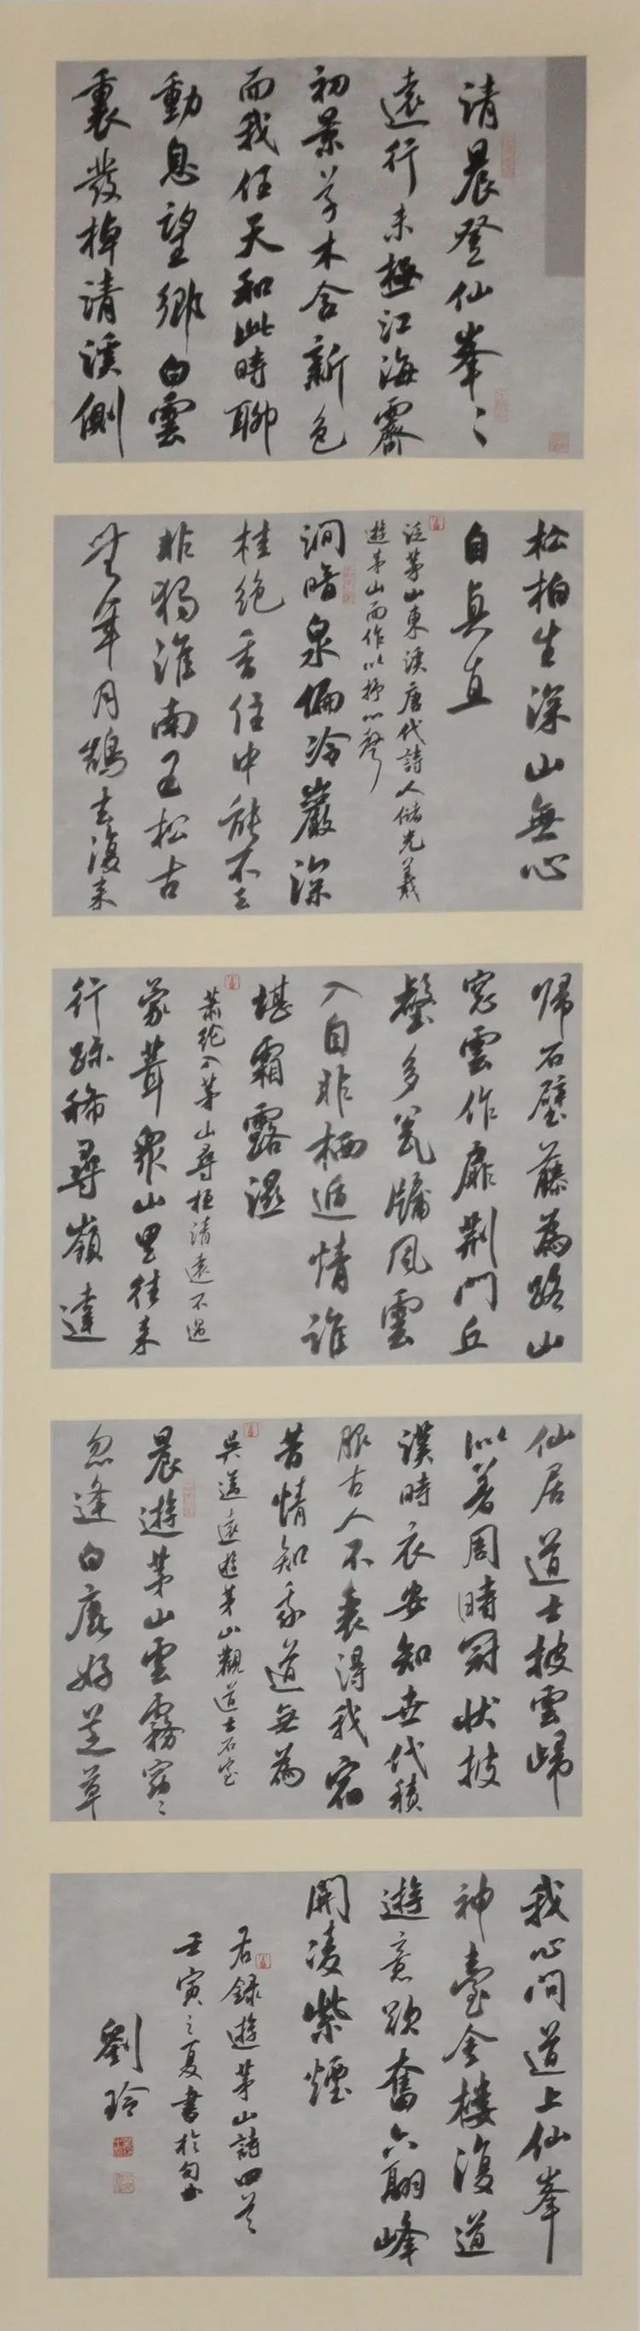 请晨登仙峯〻
遠行未極江海霽
初景草木含新色
而我任天和此時聊
動息望鄉白雲
裏發棹請溪側
松柏生深山無心
自貞直
泛茅山東溪唐代詩人儲光羲
遊茅山而作以抒心聲
澗暗泉偏冷巖深
桂絕香住中能不去
非獨淮南王松古
無年月鵠去復来
歸石壁藤為路山
窓雲作扉荆門丘
壑多瓮牖風雲
入自非栖遁情誰
堪霜露濕
蕭綸入茅山尋桓清遠不遇
蒙葺眾山里往来
行跡稀尋嶺達
仙居道士披雲歸
似著周時冠狀披
漢時衣安知世代積
服古人不衰得我宿
昔情知我道無為
吳遘遠遊茅山觀道士石室
晨遊茅山雲霧窈〻
忽逢白鹿好芝草
我心問道上仙峯
神臺金樓復道
遊意欲奮六翮峰
開凌紫煙
右錄遊茅山詩四首
壬寅之夏書於句曲
劉玲